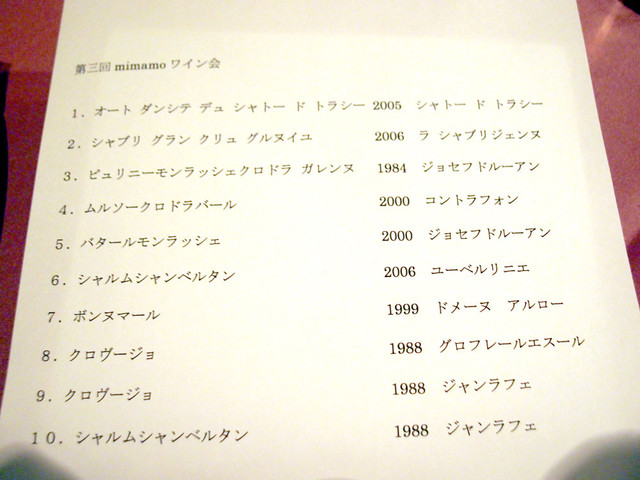 第三回 mimamo ワイン会
1．オート ダンシテ デュ シャトー ド トラシー 2005 シャトー ド トラシー
2．シャブリ グラン クリュ グルヌイユ 2006 ラ シャブリジェンヌ
3．ピュリニーモンラッシェクロドラ ガレンヌ 1984 ジョセフドルーアン
4．ムルソークロドラバール 2000 コントラフォン
5．バタールモンラッシェ 2000 ジョセフドルーアン
6．シャルムシャンベルタン 2006 ユーベルリニエ
7．ボンヌマール 1999 ドメーヌ アルロー
8．クロヴージョ 1988 グロフレールエスール
9．クロヴージョ 1988 ジャンラフェ
10．シャルムシャンベルタン 1988 ジャンラフェ